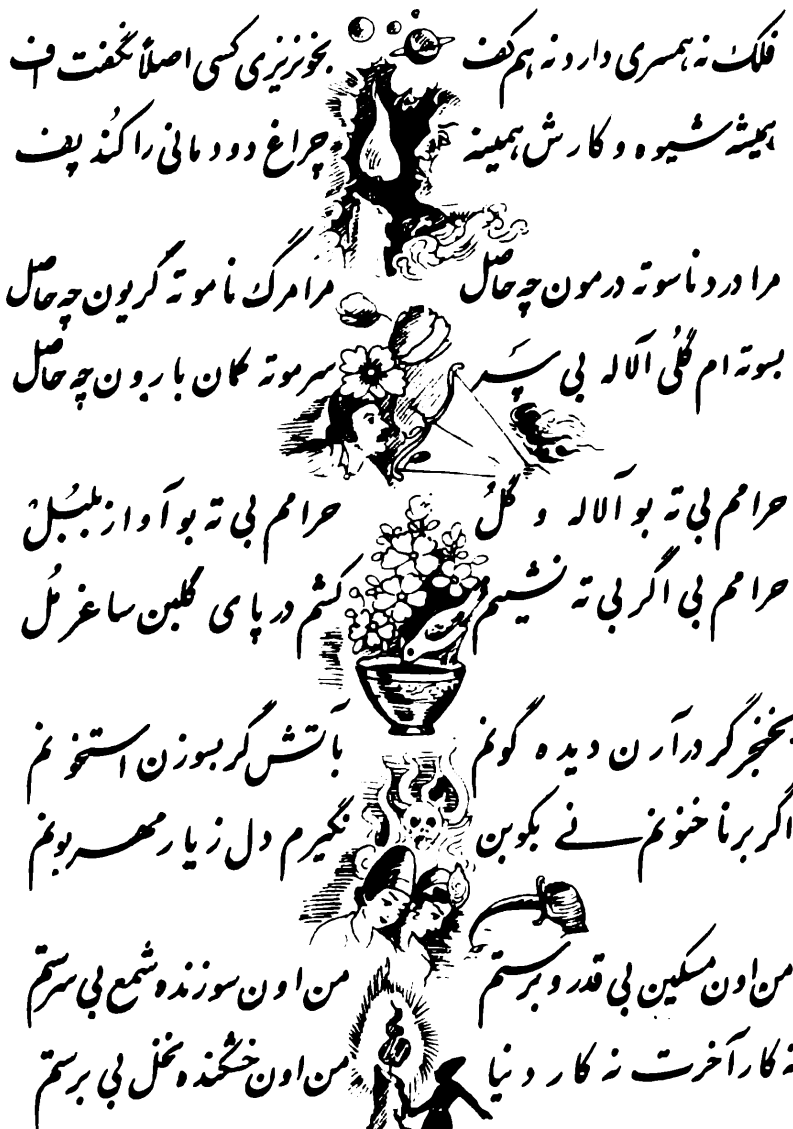 فلک نه همسری دارد نه هم کف بخونریزی کسی اصلاً نگفت اف
همیشه شیوه و کارش همینه چراغ دودمانی را کُند پف
مرا درد ناسوته درمون چه حاصل مرا مرگ ناموته گریون چه حاصل
بسوته ام گُلی آلاله بی پَر سرموته کمان بارون چه حاصل
حرامم بی ته بو آلاله و گلُ حرامم بی ته بو آواز بلبُلْ
حرامم بی اگر بی ته نشینم کشم در پای گلبن ساغر مُل
بخنجر گر درآرن دیده گونم بآتش گر بسوزن استخونم
اگر بر ناخنونم نے بکوبن نگیرم دل ز یار مهربونم
من اون مسکین بی قدر و برستم من اون سوزنده شمع بی سرستم
نه کار آخرت نه کار دنیا من اون خشکنده نخل بی برستم